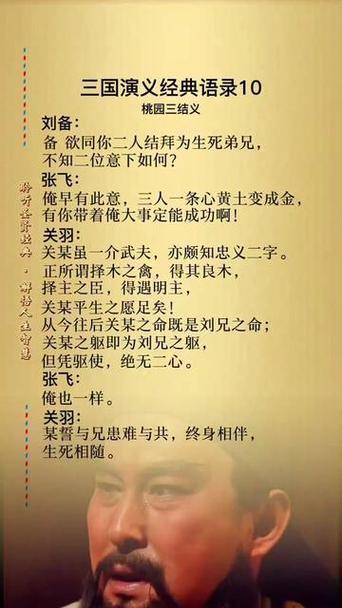 三国演义经典语录10
桃园三结义
刘备：
备 欲同你二人结拜为生死弟兄，
不知二位意下如何？
张飞：
俺早有此意，三人一条心黄土变成金，
有你带着俺大事定能成功啊！
关羽：
关某虽一介武夫，亦颇知忠义二字。
正所谓择木之禽，得其良木，
择主之臣，得遇明主，
关某平生之愿足矣！
从今往后关某之命既是刘兄之命；
关某之躯即为刘兄之躯，
但凭驱使，绝无二心。
张飞：
俺也一样。
关羽：
某誓与兄患难与共，终身相伴，
生死相随。
聆听圣贤经典·解悟人生智慧